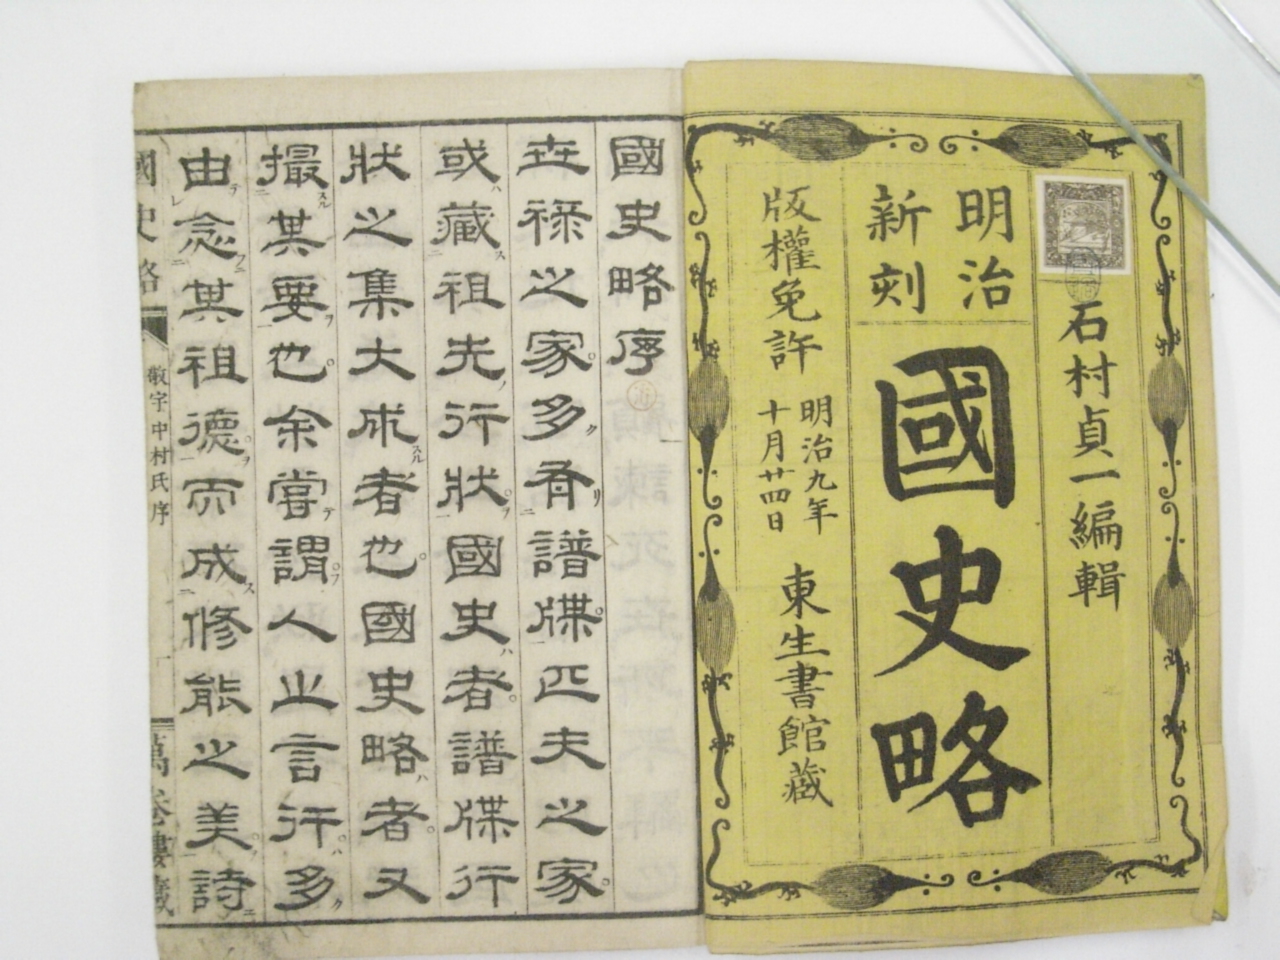 石村貞一編輯
明治
新刻
國史略
版權免許
明治九年
十月廿四日
東生書館藏
國史略序
世祿之家多有譜牒匹夫之家
或藏祖先行狀國史者譜牒行
狀之集大成者也國史略者又
撮其要也余嘗謂人之言行多
由念其祖德而成修能之美詩
國史略
敬宇中村氏序
萬卷樓藏